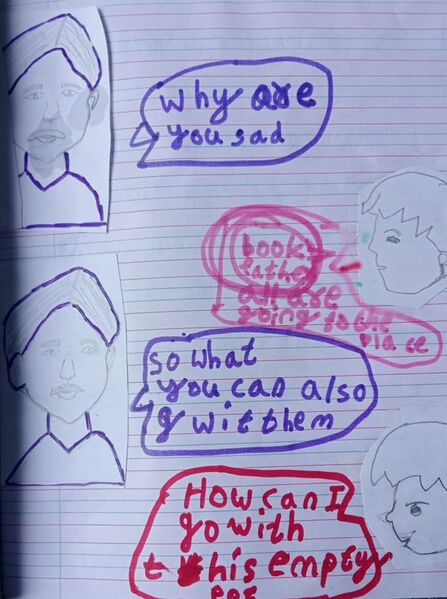 why are
you sad
book
father
all are
going to the
place
so what
you can also
g wit them
How can I
go with
this empty